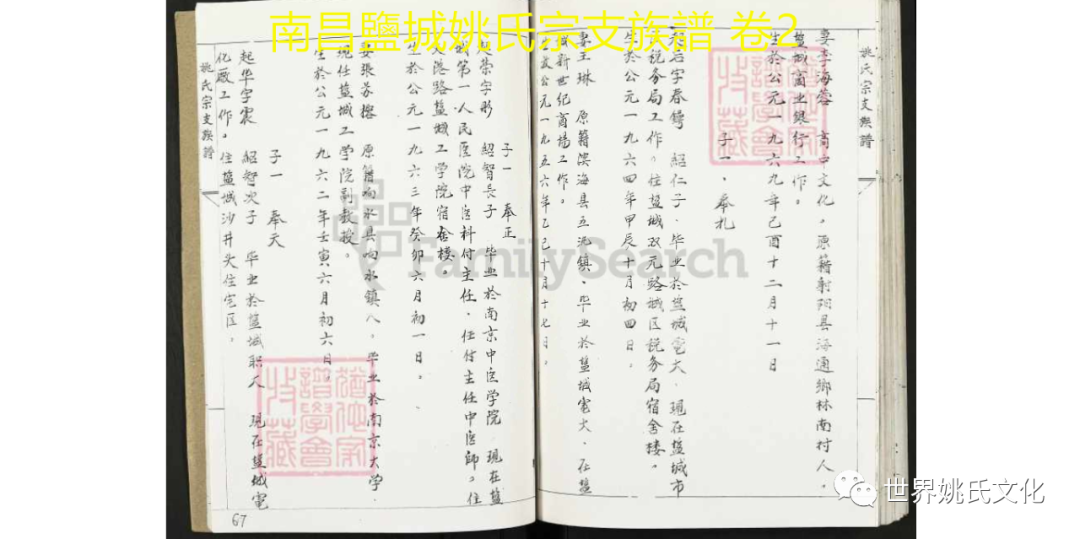 南昌鹽城姚氏宗支族譜 卷2
姚氏宗支族譜
妻李海蓉 高中文化。原籍射阳县海通鄉林南村人。
盐城商业银行工作。
生於公元一九六九年己酉十二月十一日
子一、奉礼
字春 紹仁子·毕业於盐城電大·現在盐城市
税务局工作。住盐城双元路城区税务局宿舍楼。
生於公元一九六四年甲辰十月初四日。
妻王琳 原籍滨海县五汛镇、毕业於盐城電大·在盐
城新世纪商場工作。
公元一九五六年乙巳十月十七日。
子一 奉正
起荣字 紹智長子 毕业於南京中医学院 現在盐
城第一人民医院中医科付主任、任付主任中医師。住
港路盐城工学院宿舍楼。
生於公元一九六三年癸卯六月初一日。
妻張苏榕 原籍响水县响水鎮人。毕业於南京大学·
現任盐城工学院副教授。
生於公元一九六二年壬寅六月初六日。
子一 奉天
起华字震 紹智次子 毕业於盐城职大 現在盐城電
化厰工作。住盐城沙井头住宅区。
姚氏宗支族譜
67
FamilySearch
世界姚氏文化